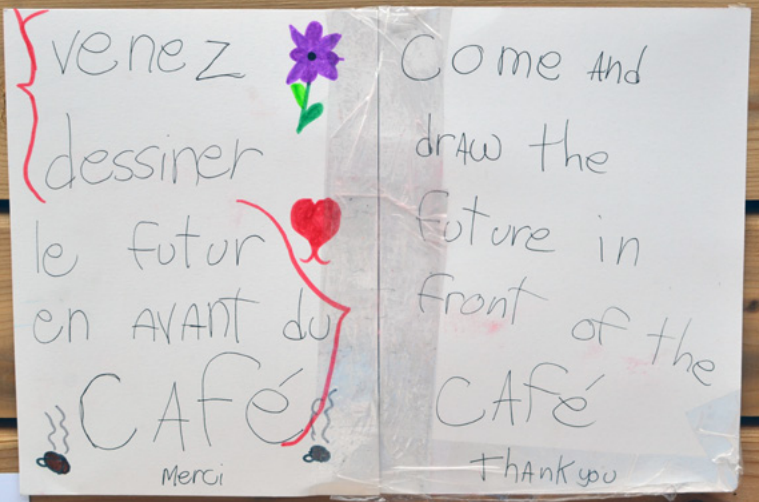 venez
dessiner
le futur
en AVANT du
CAFé
Merci
Come And
drAW the
future in
front of the
CAFé
ThAnk you